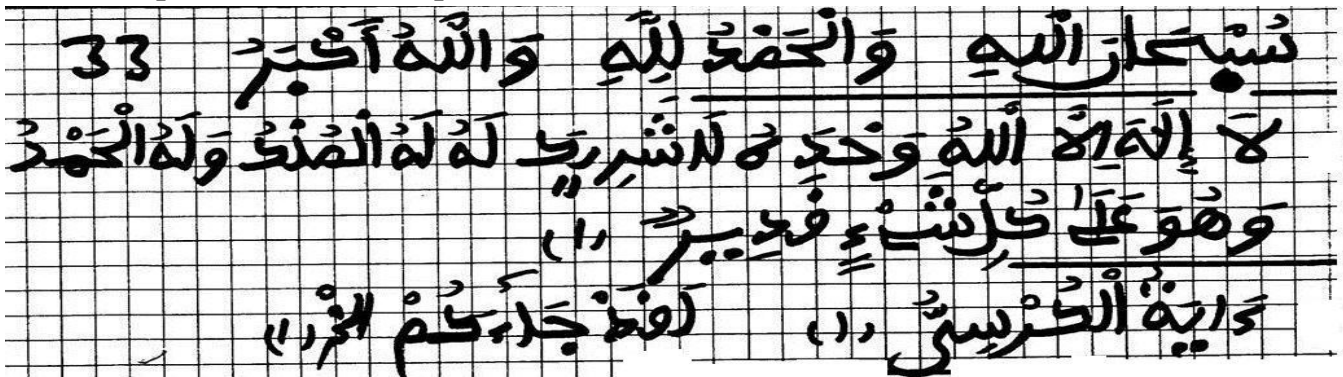 سُبْحَانَ اللهِ وَالْحَمْدُ لِلَّهِ وَاللهُ أَكْبَرُ 33
لَا إِلَهَ إِلَّا اللهُ وَحْدَهُ لَا شَرِيكَ لَهُ لَهُ الْمُلْكُ وَلَهُ الْحَمْدُ
وَهُوَ عَلَىٰ كُلِّ شَيْءٍ قَدِيرٌ (١)
ءَايَةُ الْكُرْسِيِّ (١) لَقَدْ جَاءَكُمْ الخ (١)